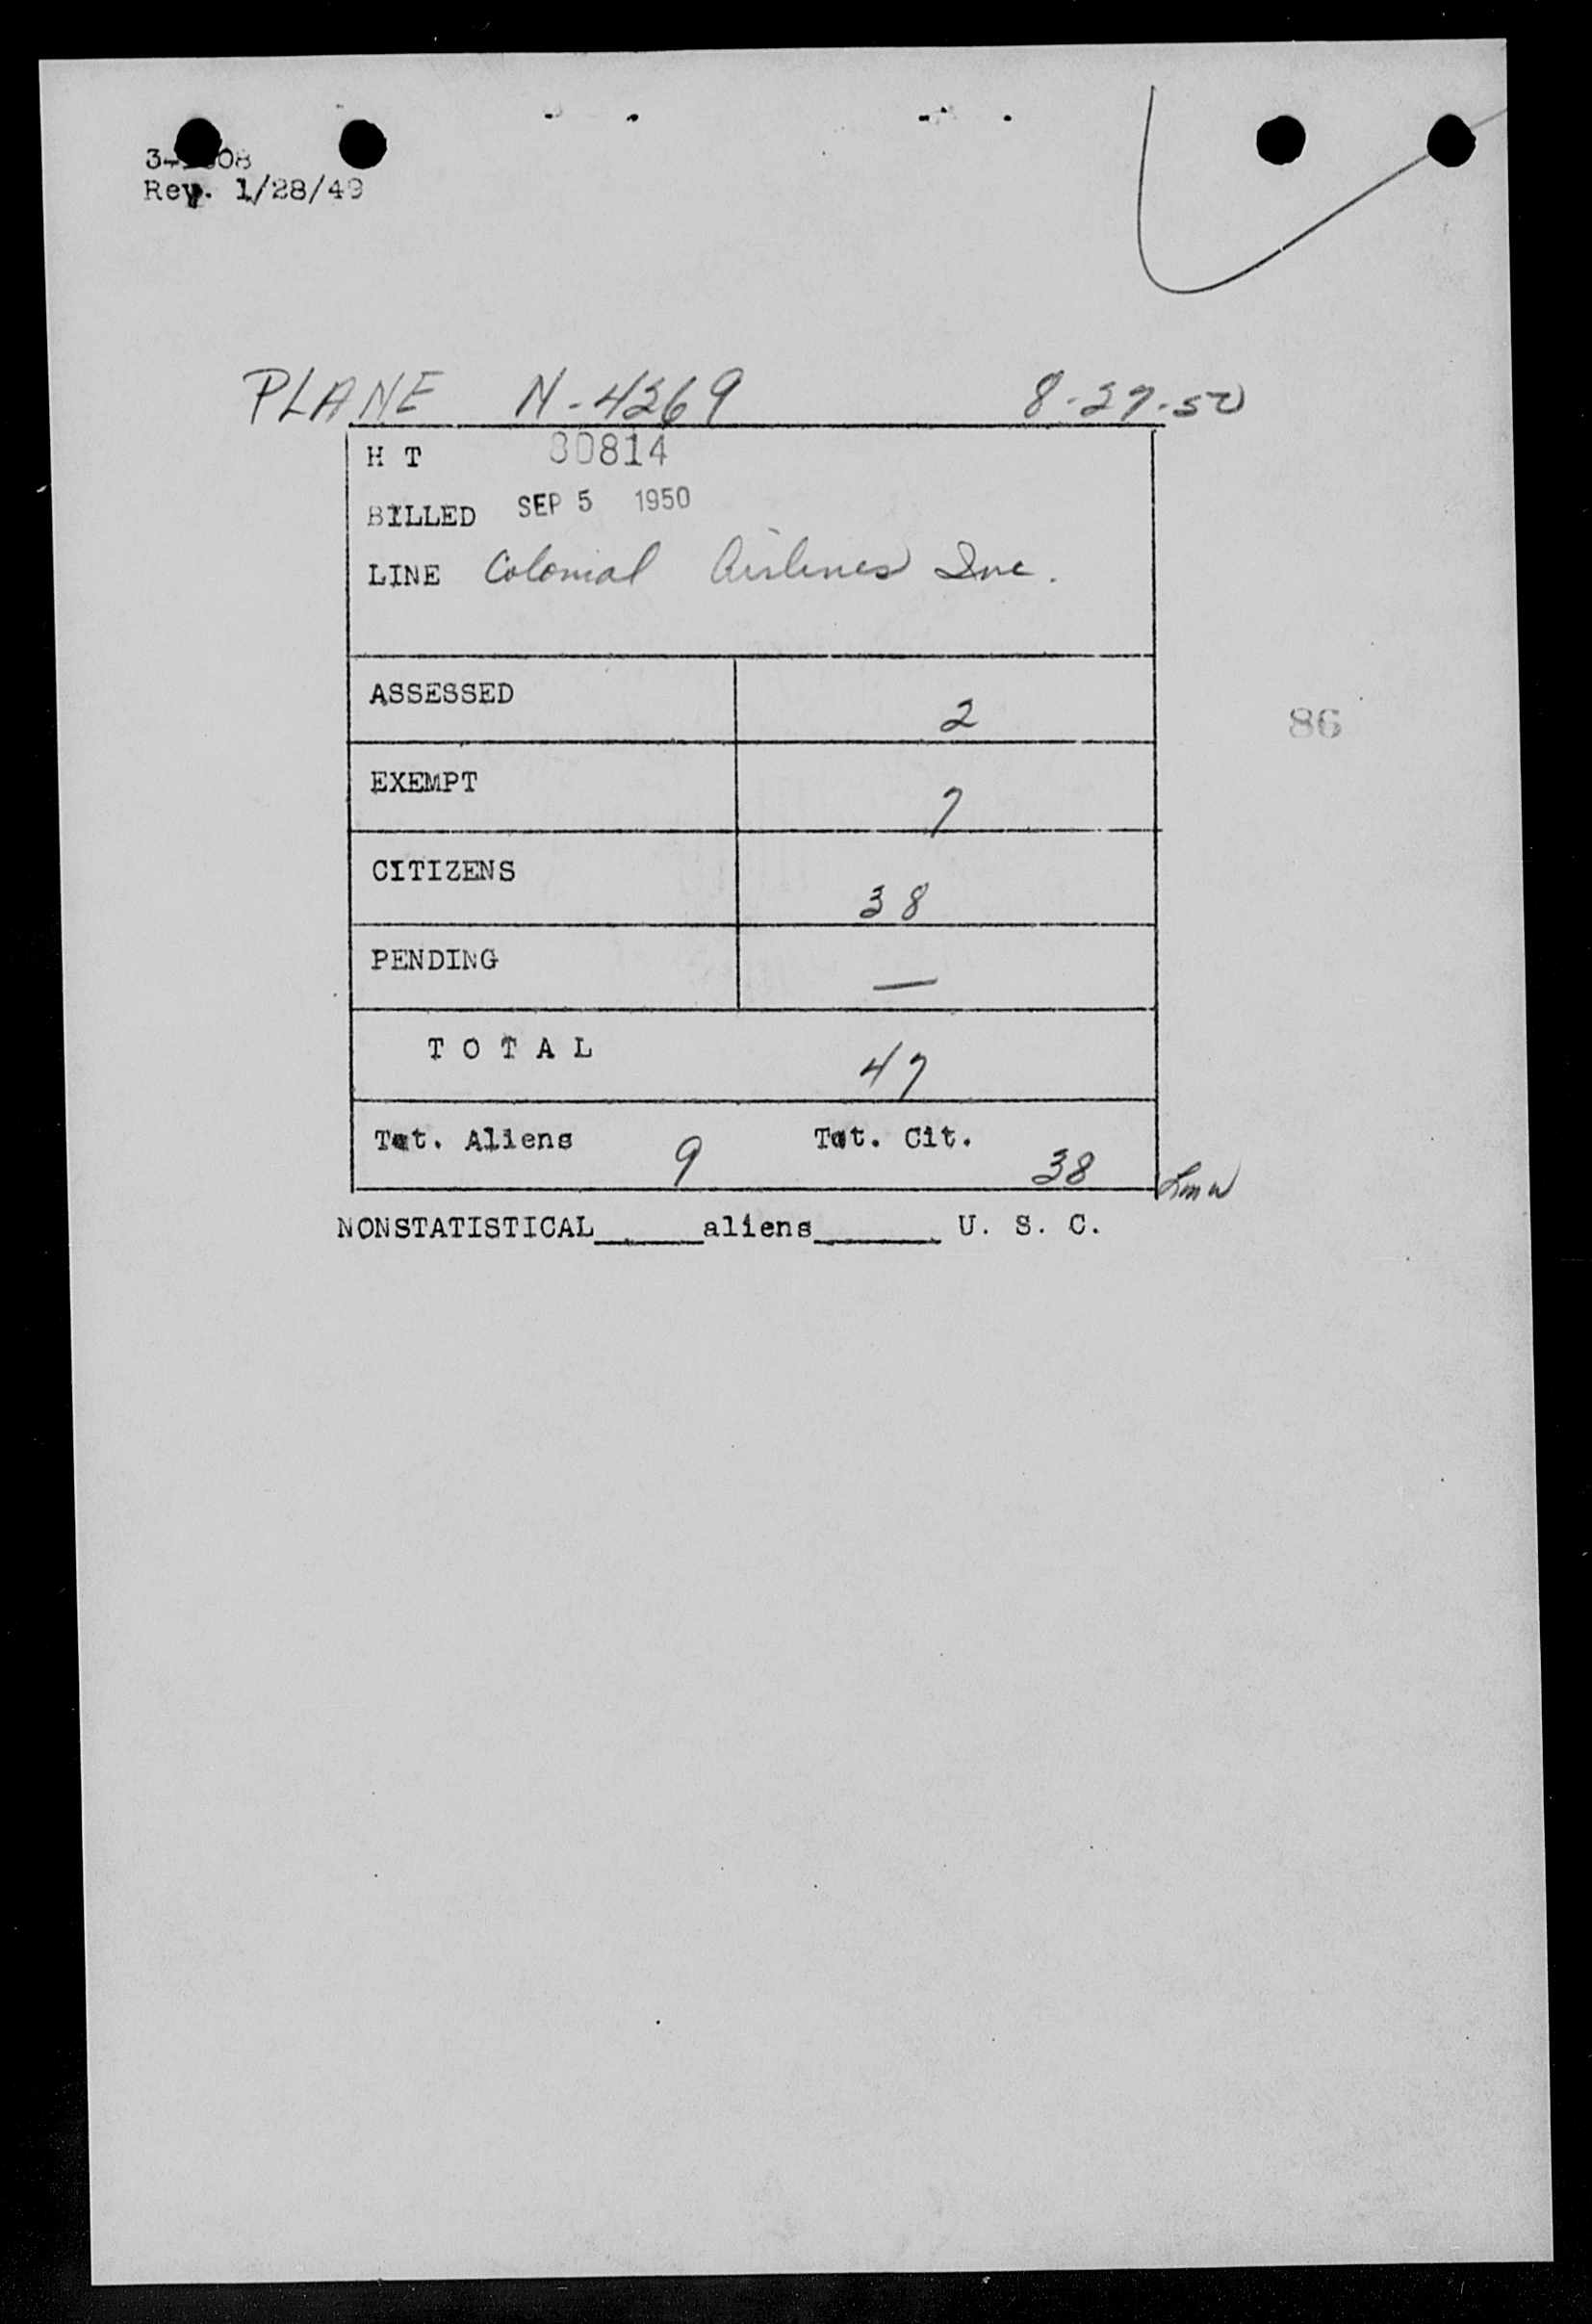 Rev. 1/28/49
PLANE N-4269 8-27-50
H T 80814
BILLED SEP 5 1950
LINE Colonial Airlines Inc.
ASSESSED 2
86
EXEMPT 7
CITIZENS 38
PENDING —
TOTAL 47
Tot. Aliens 9 Tot. Cit. 38
NONSTATISTICAL_____aliens______ U. S. C.